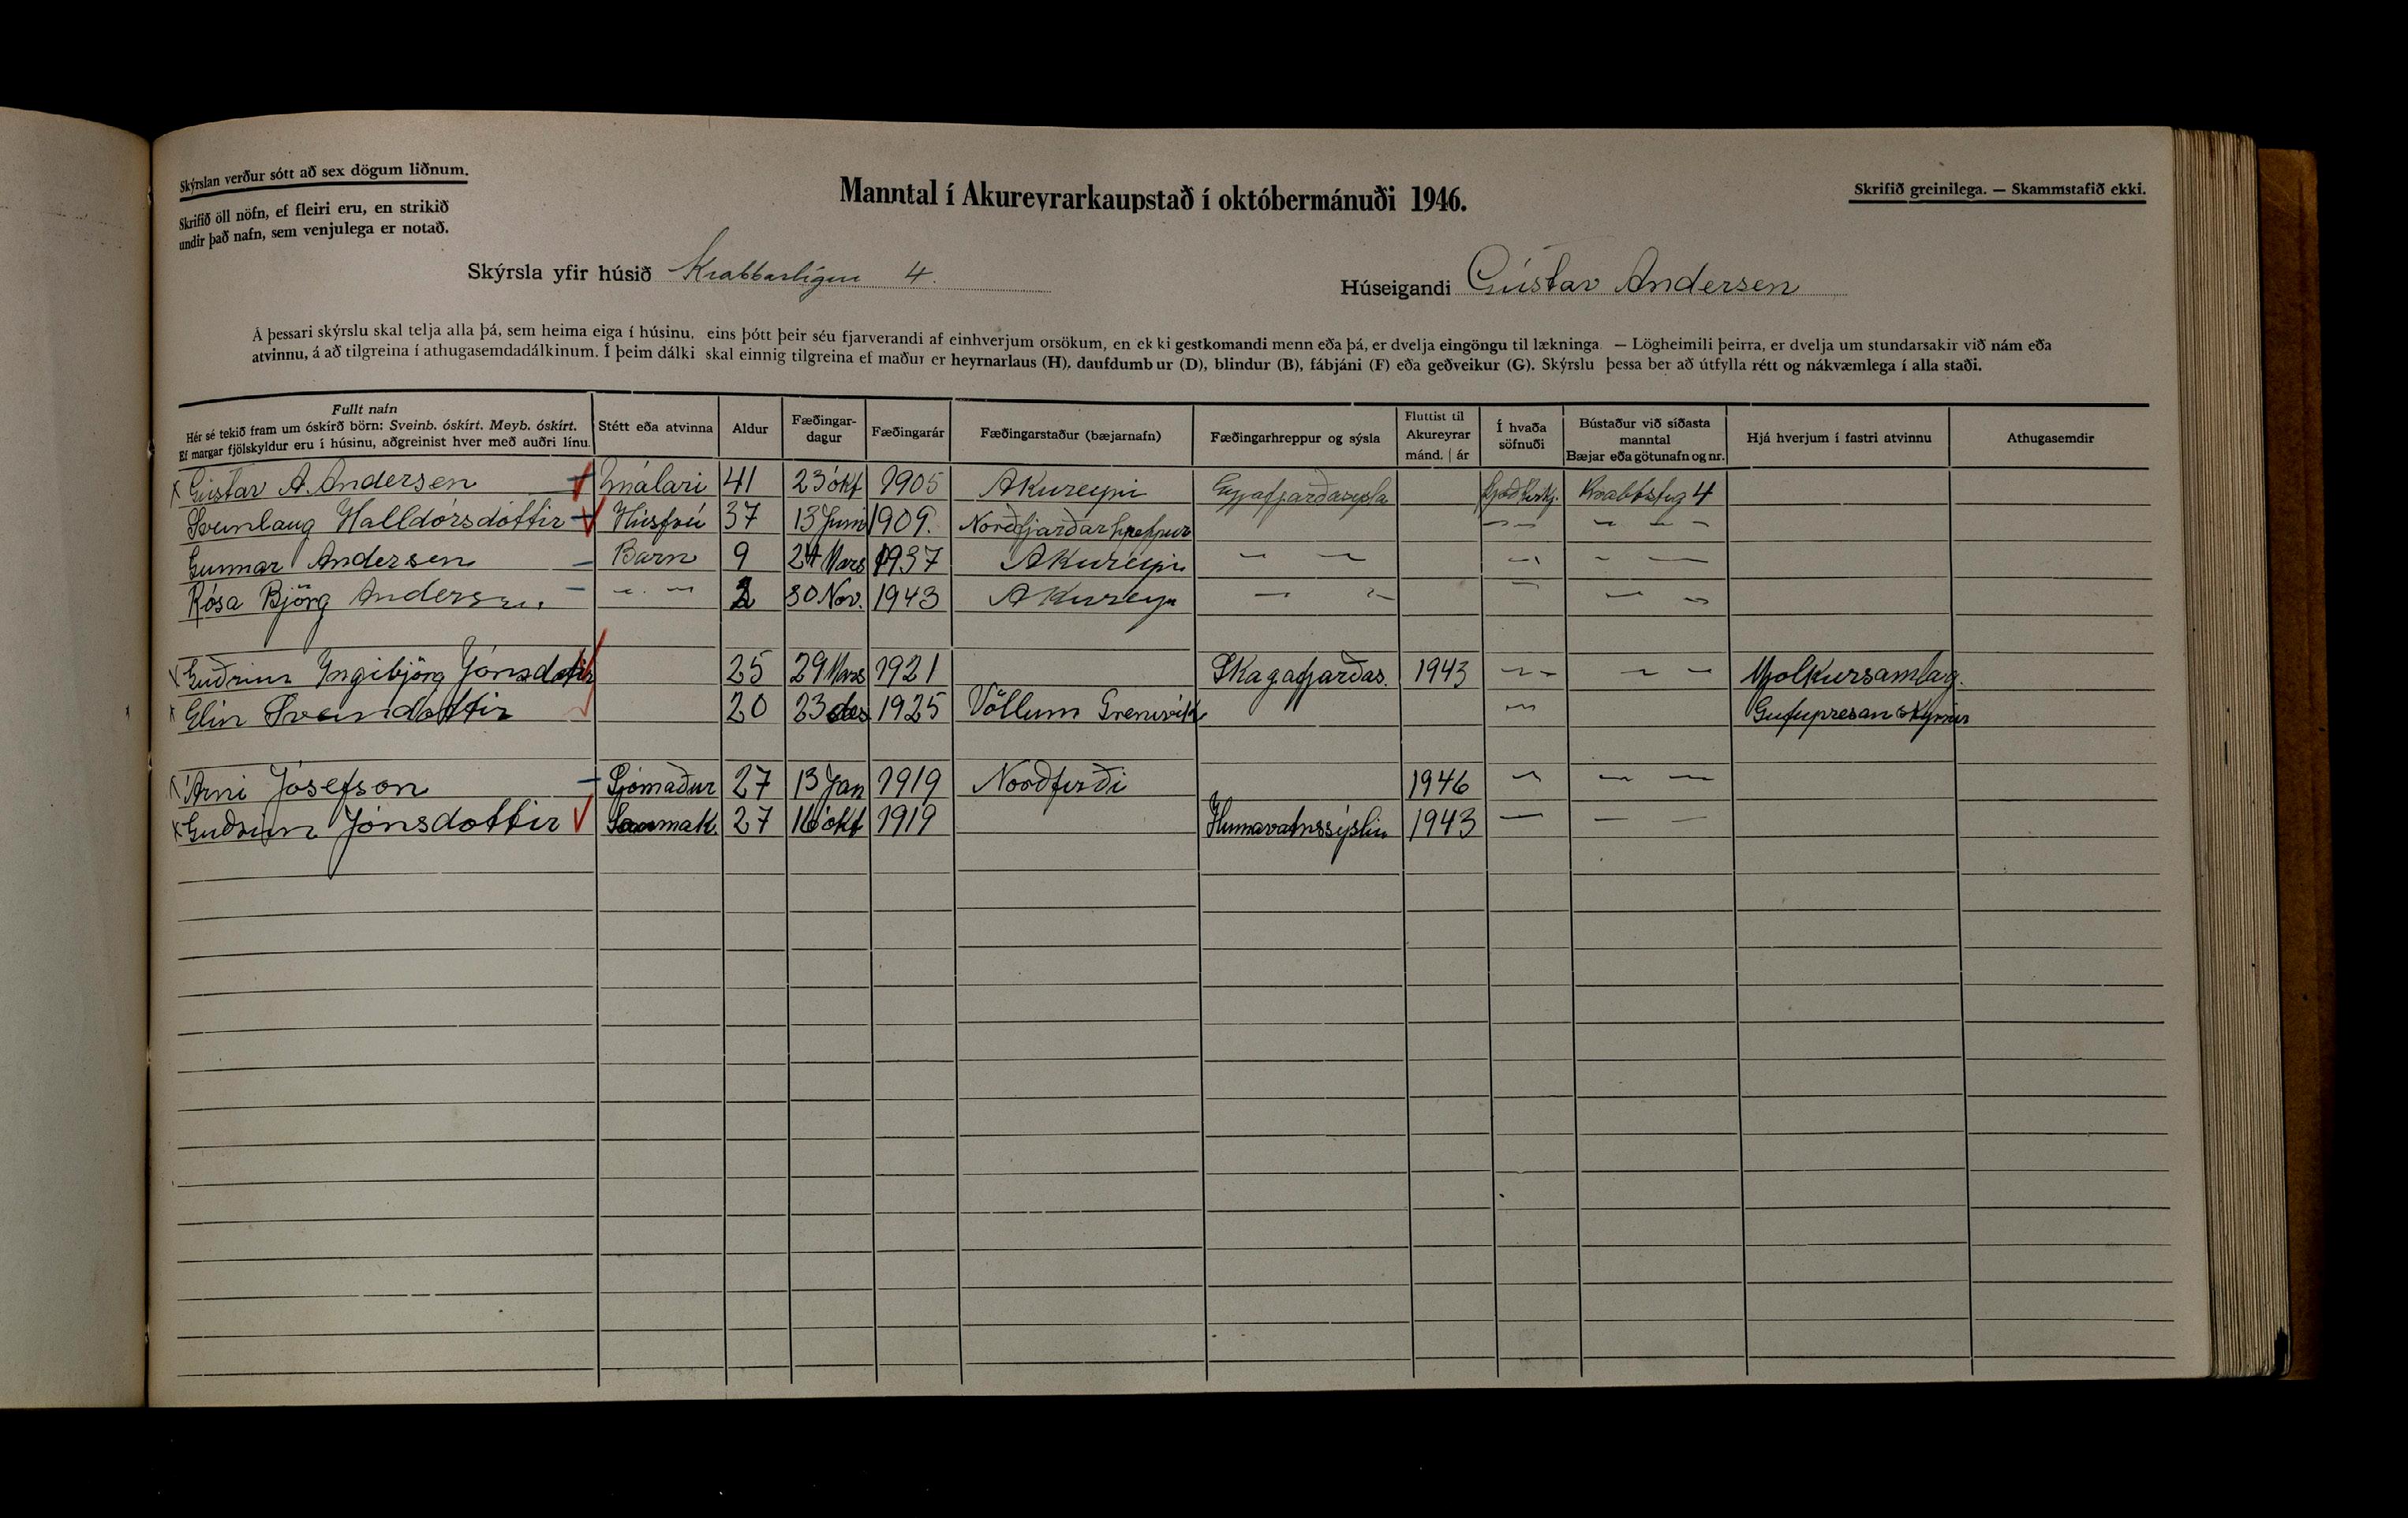 Skýrslan verður sótt að sex dögum liðnum.
Skrifið öll nöfn, ef fleiri eru, en strikið
undir það nafn, sem venjulega er notað.
Manntal í Akureyrarkaupstað í októbermánuði 1946.
Skrifið greinilega. — Skammstafið ekki.
Skýrsla yfir húsið Krabbastígur 4.
Húseigandi Gústav Andersen
Á þessari skýrslu skal telja alla þá, sem heima eiga í húsinu, eins þótt þeir séu fjarverandi af einhverjum orsökum, en ekki gestkomandi menn eða þá, er dvelja eingöngu til lækninga. — Lögheimili þeirra, er dvelja um stundarsakir við nám eða
atvinnu, á að tilgreina í athugasemdadálkinum. Í þeim dálki skal einnig tilgreina ef maður er heyrnarlaus (H), daufdumbur (D), blindur (B), fábjáni (F) eða geðveikur (G). Skýrslu þessa ber að útfylla rétt og nákvæmlega í alla staði.
Fullt nafn Hér sé tekið fram um óskírð börn: Sveinb. óskírt. Meyb. óskírt. Ef margar fjölskyldur eru í húsinu, aðgreinist hver með auðri línu. Stétt eða atvinna Aldur Fæðingar-dagur Fæðingarár Fæðingarstaður (bæjarnafn) Fæðingarhreppur og sýsla Fluttist til Akureyrar mánd. | ár Í hvaða söfnuði Bústaður við síðasta manntal Bæjar eða götunafn og nr. Hjá hverjum í fastri atvinnu Athugasemdir
Gústav A. Andersen málari 41 23 okt 1905 Akureyri Eyjafjarðasysla Krabbstig 4
Sveinlaug Halldórsdóttir Húsfrú 37 13 Juni 1909. Norðfjarðarhreppur
Gunnar Andersen Barn 9 24 Mars 1937 Akureyri
Rósa Björg Andersen 2 30 Nov. 1943 Akureyri
Guðrún Yngibjörg Jónsdottir 25 29 Mars 1921 Skagafjarðas. 1943 Mjolkursamlag.
Elin Sveindottir 20 23 des 1925 Völlum Grenivik Gufupresan
Árni Jósefson Sjómaður 27 13 Jan 1919 Norðfirði 1946
Guðrún Jónsdottir 27 16 okt 1919 Hunavatnssýslu 1943